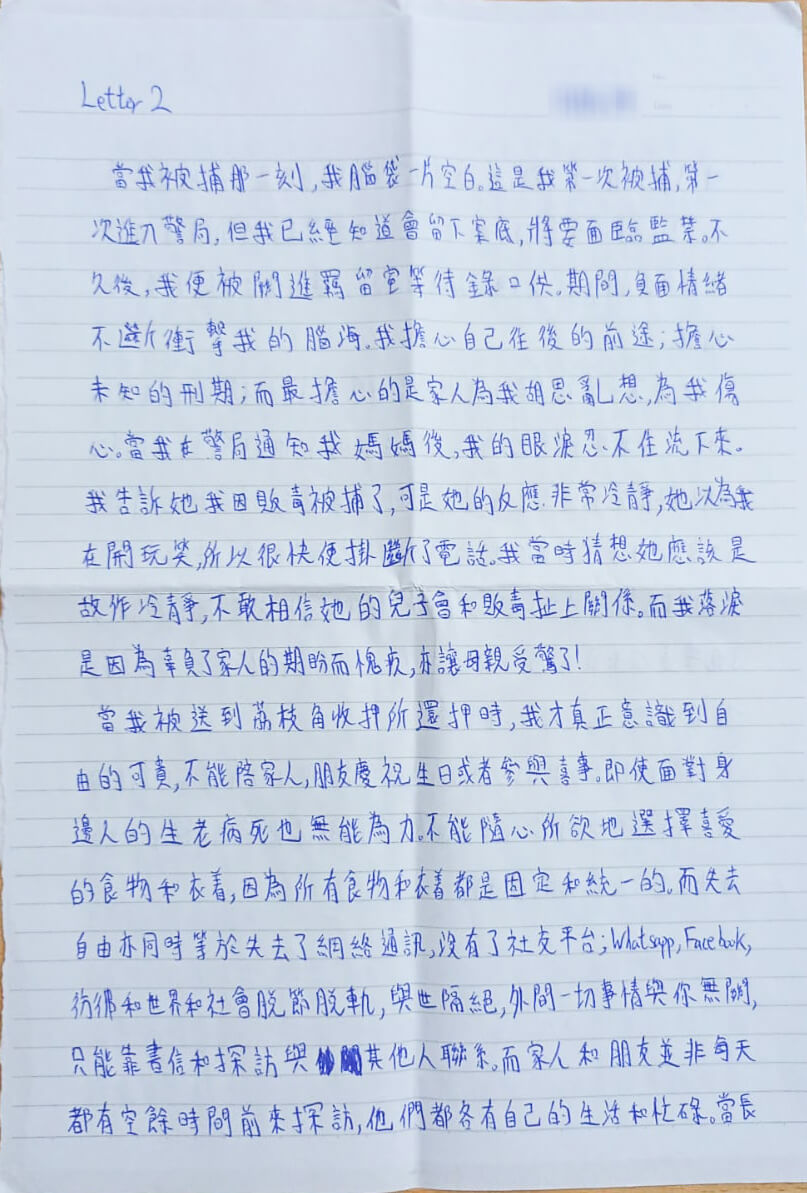 Letter 2
當我被捕那一刻,我腦袋一片空白。這是我第一次被捕,第一
次進入警局,但我已經知道會留下案底,將要面臨監禁。不
久後,我便被關進羈留室等待錄口供。期間,負面情緒
不斷衝擊我的腦海。我擔心自己往後的前途;擔心
未知的刑期;而最擔心的是家人為我胡思亂想,為我傷
心。當我在警局通知我媽媽後,我的眼淚忍不住流下來。
我告訴她我因販毒被捕了,可是她的反應非常冷靜,她以為我
在開玩笑,所以很快便掛斷了電話。我當時猜想她應該是
故作冷靜,不敢相信她的兒子會和販毒扯上關係。而我落淚
是因為辜負了家人的期盼而愧疚,亦讓母親受驚了!
當我被送到荔枝角收押所還押時,我才真正意識到自
由的可貴,不能陪家人,朋友慶祝生日或者參與喜事。即使面對身
邊人的生老病死也無能為力。不能隨心所欲地選擇喜愛
的食物和衣着,因為所有食物和衣着都是固定和統一的。而失去
自由亦同時等於失去了網絡通訊,沒有了社交平台;Whatsapp,Facebook,
彷彿和世界和社會脫節脫軌,與世隔絕,外間一切事情與你無關,
只能靠書信和探訪與其他人聯系。而家人和朋友並非每天
都有空餘時間前來探訪,他們都各有自己的生活和忙碌。當長